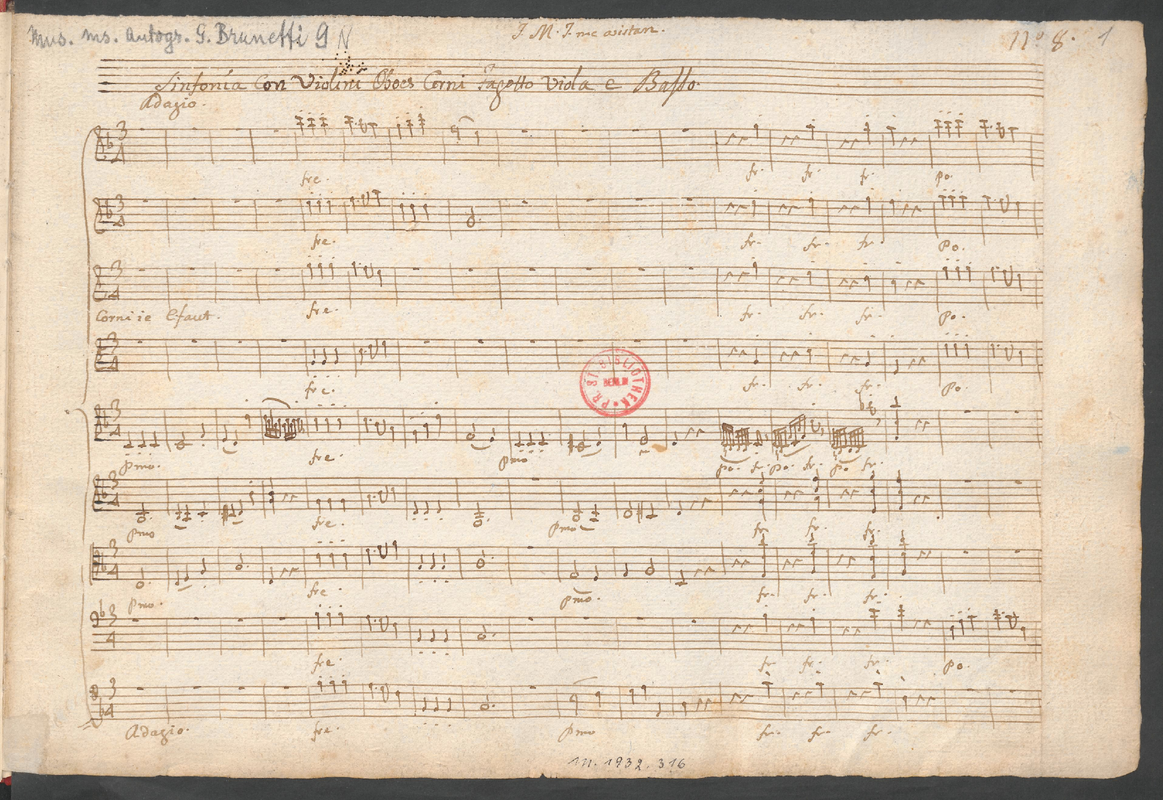 Mus. ms. Autogr. G. Brunetti 9 N
J. M. J. me asistan.
Nº 8. 1
Sinfonía Con Violini Oboes Corni Fagotto Viola e Basso.
Adagio.
3 4
fre. fr. fr. fr. po.
3 4
fre. fr. fr. fr. Po.
3 4
Corni in Effaut. fre. fr. fr. fr. Po.
3 4
fre. fr. fr. fr. Po.
PR. ST. BIBLIOTHEK
BERLIN
3 4
Pmo. fre. Pmo. po. fr. po. fr. po fr.
3 4
Pmo fre. Pmo fr. fr. fr.
3 4
Pmo. fre. Pmo. fr. fr. fr.
3 4
fre. fr. fr. fr. po.
3 4
Adagio. fre. Pmo fr. fr. fr.
M. 1932. 316